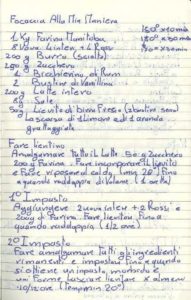 Focaccia Alla Mia Maniera
160° x 10mn
1 Kg Farina Manitoba 180° x 50mn
8 Uova Intere + 4 Rossi
200 g Burro (sciolto)
250 g Zucchero
1 Bicchierino di Rum
2 Bustine di Vanillina
200 g Latte intero
8g Sale
50g Lievito di birra Fresco
La scorza di 1 limone ed 1 arancia
grattugiate
Fare lievitino
Amalgamare tutto il Latte 50 g Zucchero
200 g Farina. Fare incorporare il liquido
e fare riposare al caldo
quando raddoppia di Volume (1 ora)
1° Impasto
Aggiungere 2 uova intere + 2 Rossi e
200g di Farina. Fare lievitare Fino a
quando raddoppia (1/2 ora)
2° Impasto
Fare amalgamare tutti gli ingredienti
rimanenti e impastare fino a quando
si ottiene un impasto morbido e
Forme lasciare lievitare x almeno
10/12 ore